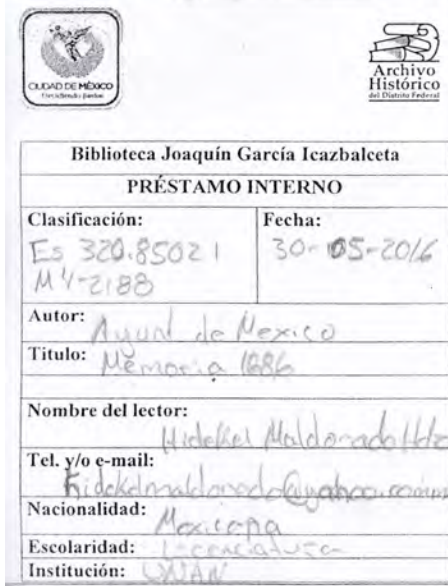 CIUDAD DE MÉXICO
Decidiendo Juntos
Archivo
Histórico
del Distrito Federal
Biblioteca Joaquín García Icazbalceta
PRÉSTAMO INTERNO
Clasificación:
Es 320.85021
M4-2188
Fecha:
30-05-2016
Autor: Ayunt de Mexico
Titulo: Memoria 1886
Nombre del lector:
Hidekel Maldonado Hdz
Tel. y/o e-mail:
Nacionalidad: Mexicana
Escolaridad: Licenciatura
Institución: UNAM